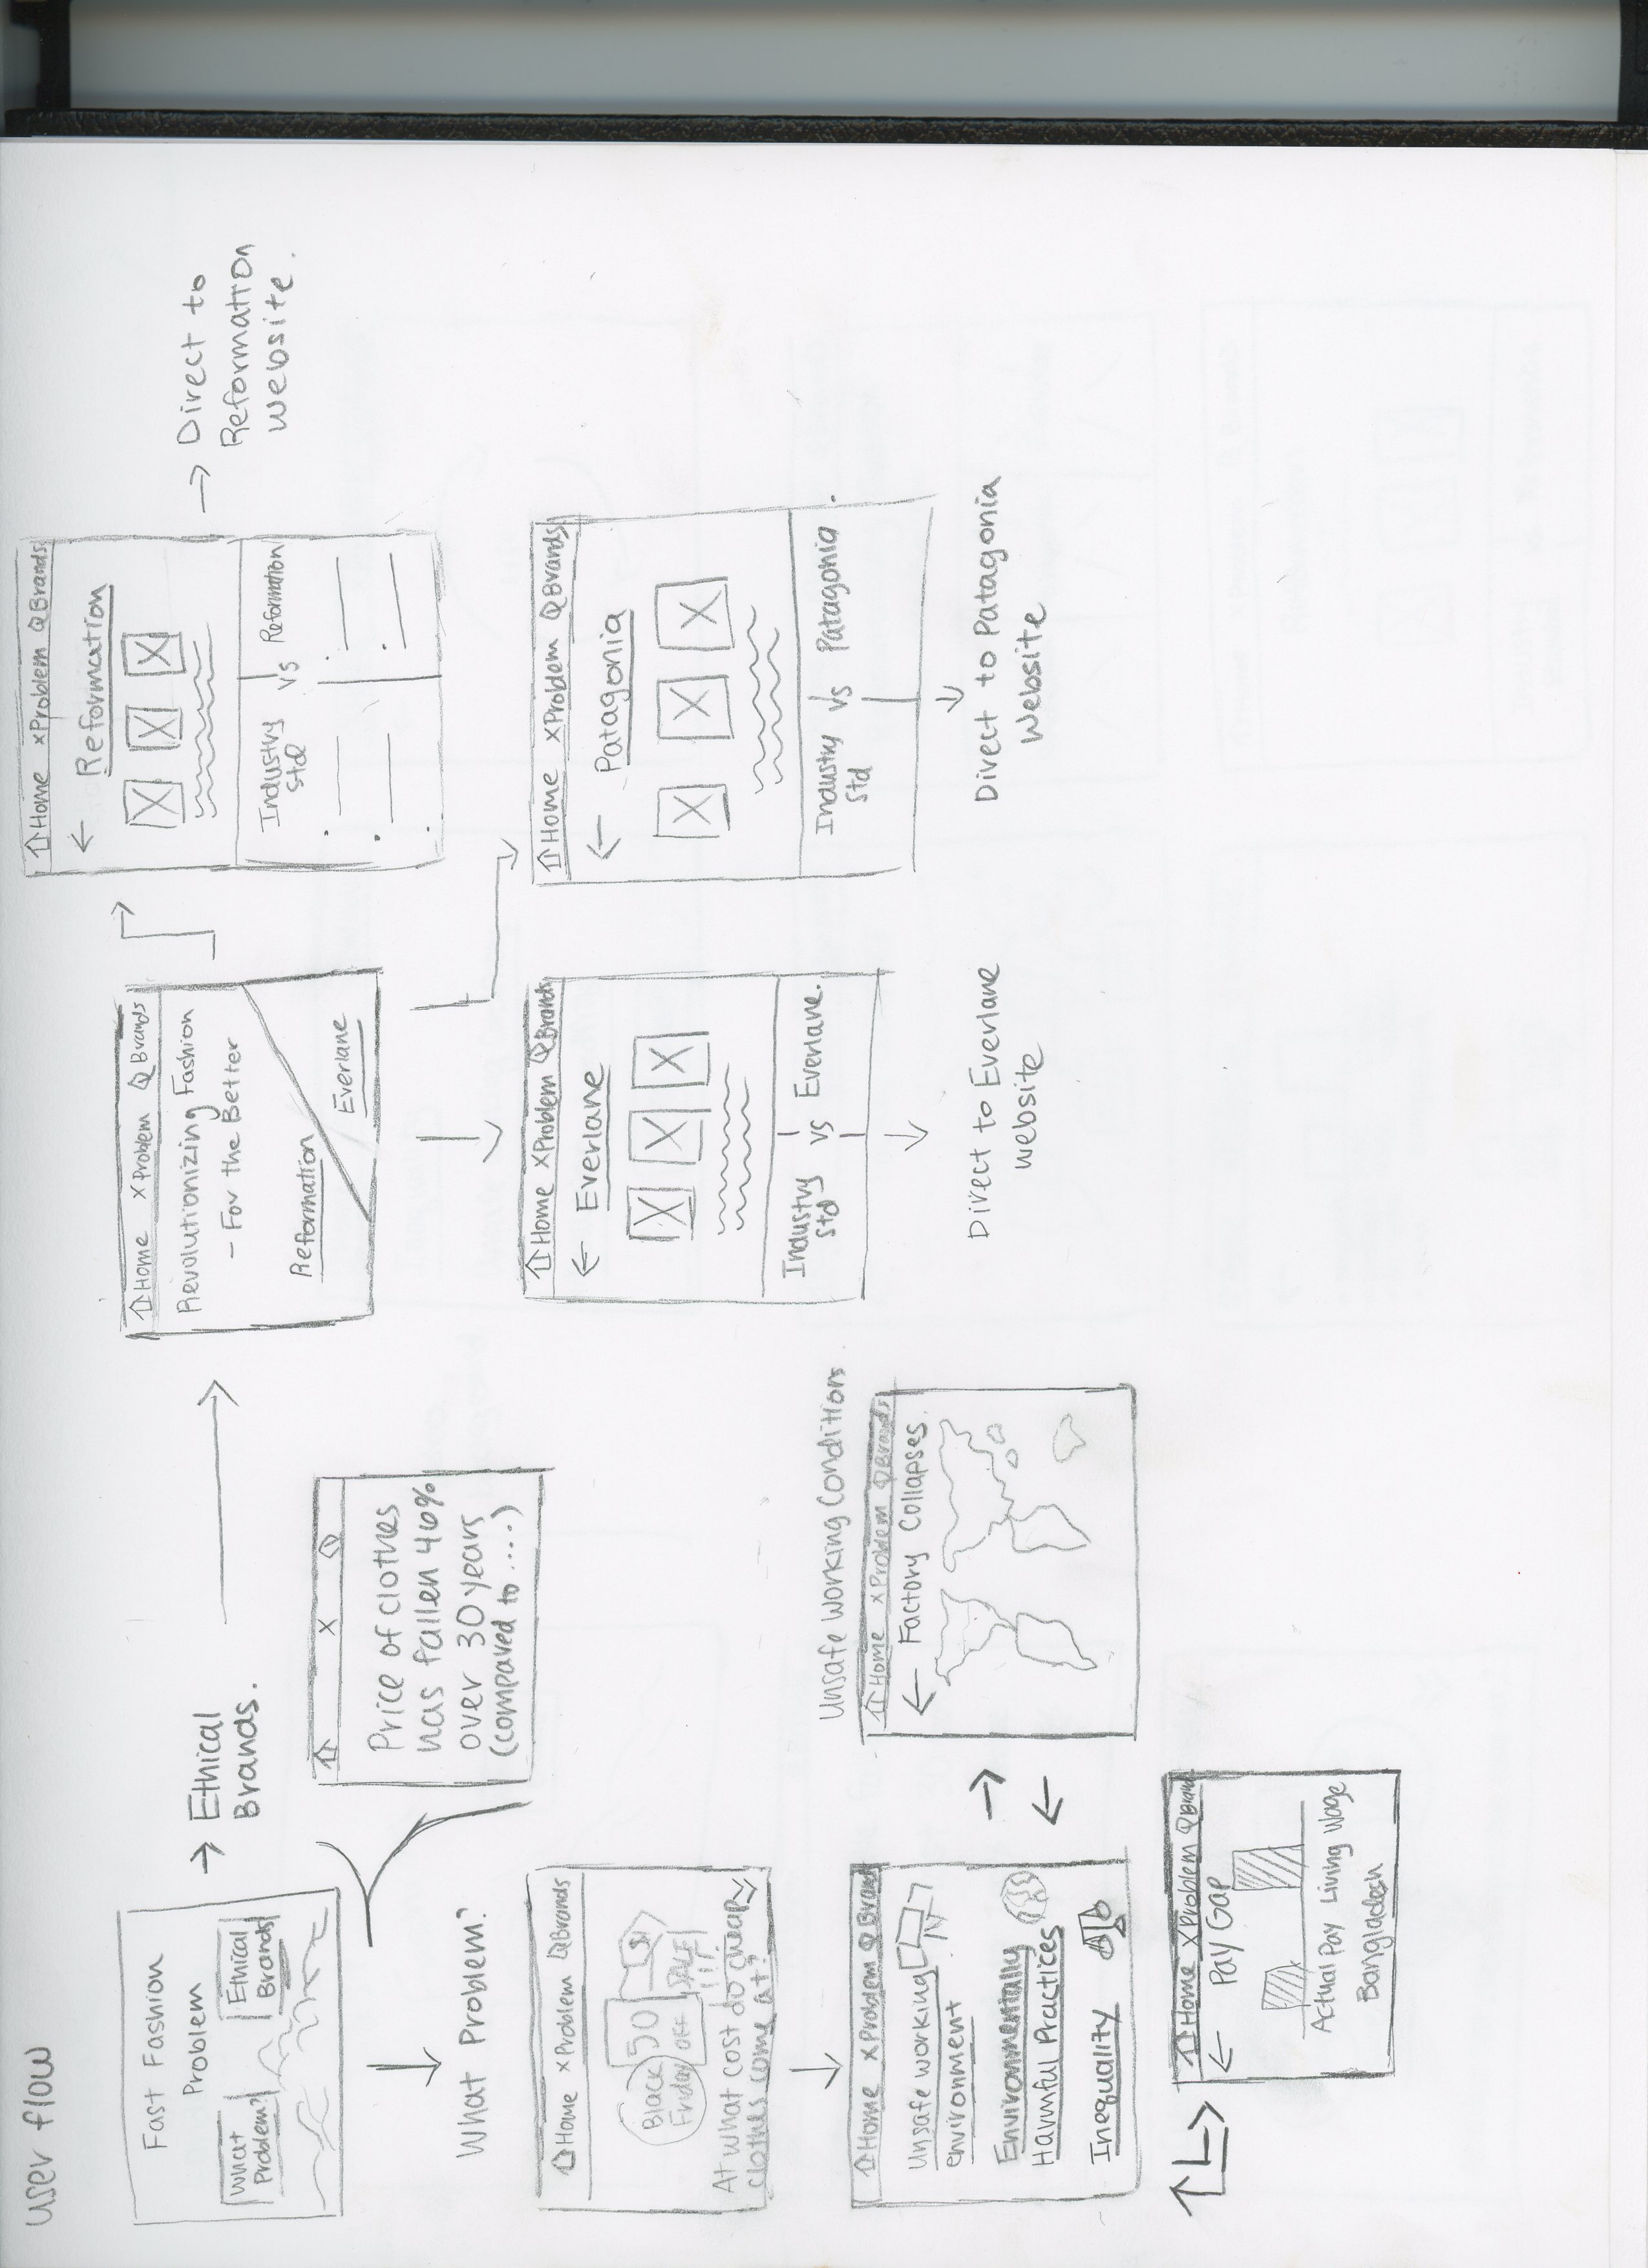 user flow
Fast Fashion
Problem
What
Problem?
Ethical
Brands
→ Ethical
Brands.
What Problem?
X
Price of clothes
has fallen 46%
over 30 years
(compared to ....)
Home x Problem Brands
Black
Friday
50
OFF
$
SALE
!!!
At what cost do cheap
clothes come at?
Home x Problem Brand
Unsafe working
environment
Environmentally
Harmful Practices
Inequality
Unsafe Working Conditions
Home x Problem Brands
← Factory Collapses.
Home x Problem Brand
← Pay Gap
Actual Pay Living Wage
Bangladesh
Home x Problem Brands
Revolutionizing Fashion
- For the Better
Reformation
Everlane
Home x Problem Brands
←
Reformation
Industry
Std
vs
Reformation
→ Direct to
Reformation
Website.
Home x Problem Brands
← Everlane
Industry
Std
vs
Everlane.
Direct to Everlane
website
Home x Problem Brands
← Patagonia
Industry
Std
vs
Patagonia.
Direct to Patagonia
Website